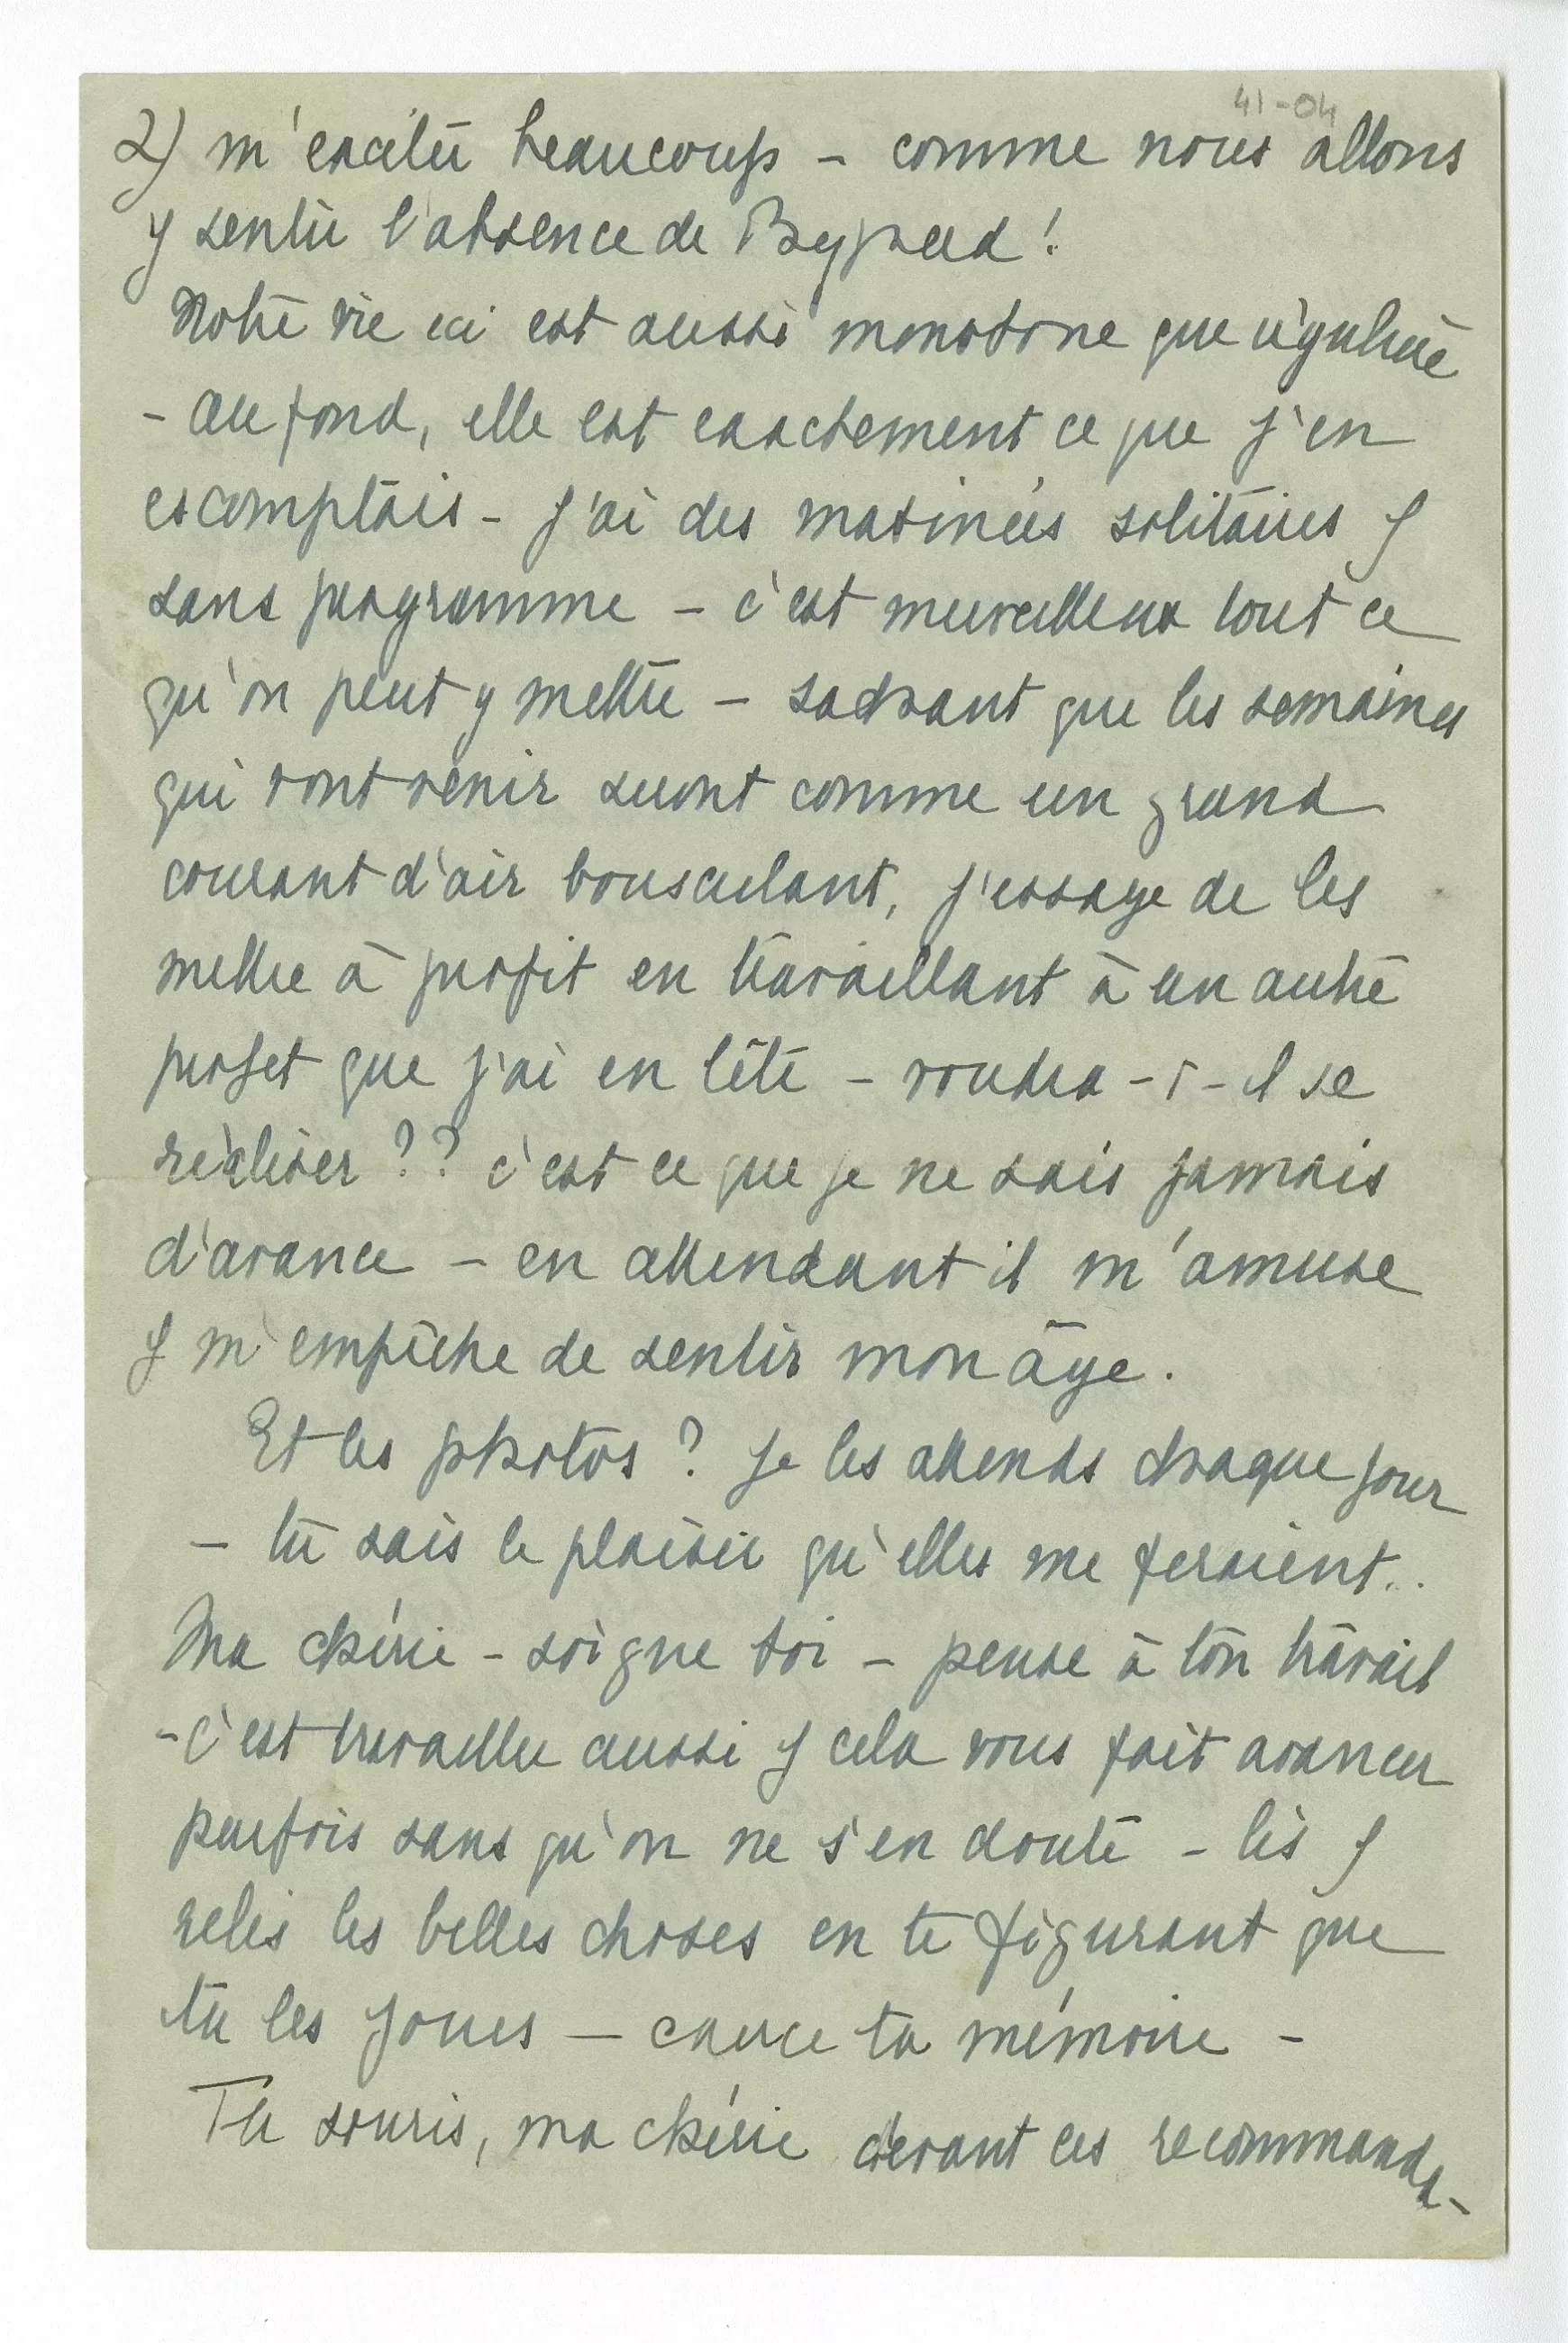 41-04
2) m'exciter beaucoup – comme nous allons
y sentir l'absence de !
Notre vie ici est aussi monotone que régulière
– au fond, elle est exactement ce que j'en
escomptais – j'ai des matinées solitaires &
sans programme – c'est merveilleux tout ce
qu'on peut y mettre – sachant que les semaines
qui vont venir seront comme un grand
courant d'air bousculant, j'essaye de les
mettre à profit en travaillant à un autre
projet que j'ai en tête – voudra-t-il se
réaliser ?? c'est ce que je ne sais jamais
d'avance – en attendant il m'amuse
& m'empêche de sentir mon âge.
Et les photos ? je les attends chaque jour
– tu sais le plaisir qu'elles me feraient..
Ma chérie – soigne toi – pense à ton travail
– c'est travailler aussi & cela vous fait avancer
parfois sans qu'on ne s'en doute – lis &
relis les belles choses en te figurant que
tu les joues – exerce ta mémoire –
Tu souris, ma chérie devant ces recommanda-